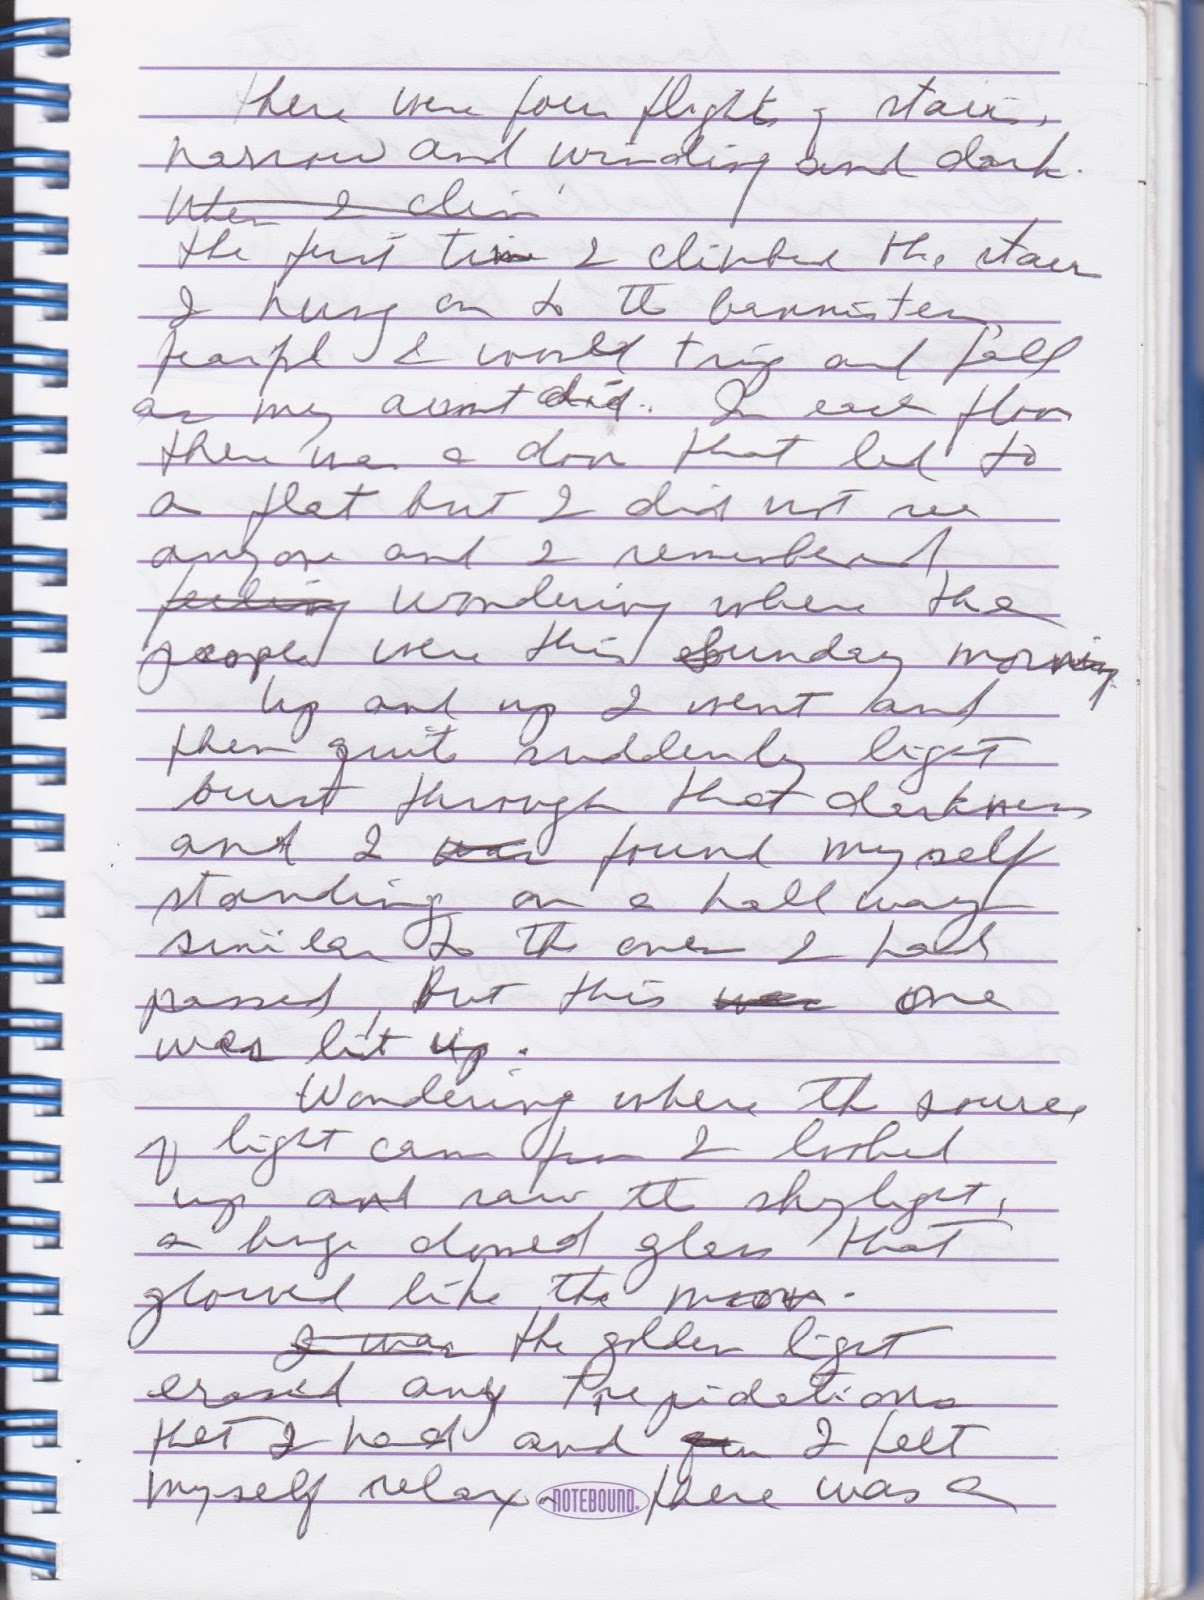 there were four flights of stairs,
narrow and winding and dark.
When I clim
the first time I climbed the stairs
I hung on to the bannister,
fearful I would trip and fall
as my aunt did. In each floor
there was a door that led to
a flat but I did not see
anyone and I remembered
feeling wondering where the
people were this Sunday morning.
Up and up I went and
then quite suddenly light
burst through that darkness
and I was found myself
standing on a hallway
similar to the ones I had
passed, but this was one
was lit up.
Wondering where the source
of light came from I looked
up and saw the skylight,
a huge domed glass that
glowed like the moon.
I was the golden light
erased any trepidations
that I had and I felt
myself relax. there was a
NOTEBOUND